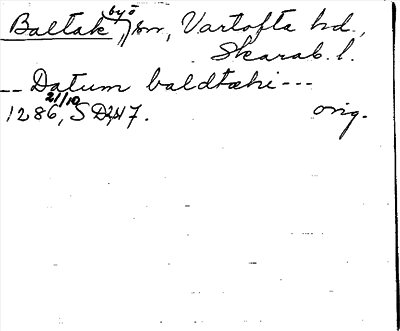 Baltak byö sn, Vartofta hd.,
Skarab. l.
-- Datum baldtæki ---
1286 21/10, SD 2, 47. orig.